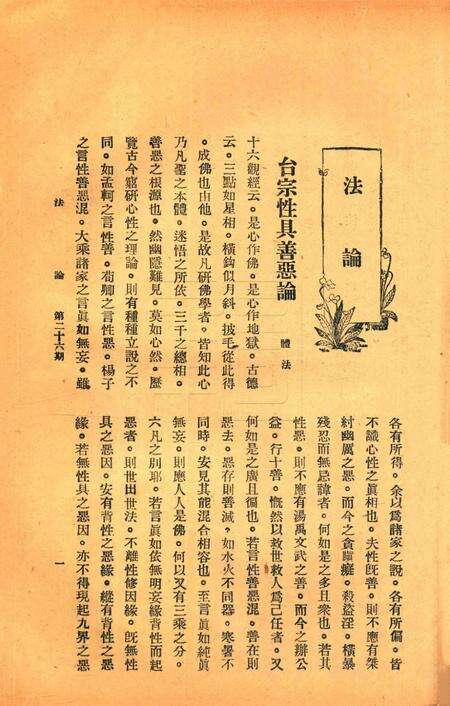 法論
台宗性具善惡論
體法
十六觀經云。是心作佛。是心作地獄。古德
云。三點如星相。橫鈎似月斜。披毛從此得
。成佛也由他。是故凡研佛學者。皆知此心
乃凡聖之本體。迷悟之所依。三千之總相。
善惡之根源也。然幽隱難見。莫如心然。歷
覽古今窮研心性之理論。則有種種立說之不
同。如孟軻之言性善。荀卿之言性惡。楊子
之言性善惡混。大乘諸家之言眞如無妄。雖
各有所得。余以爲諸家之說。各有所偏。皆
不識心性之眞相也。夫性旣善。則不應有桀
紂幽厲之惡。而今之貪瞋癡。殺盜淫。橫暴
殘忍而無忌諱者。何如是之多且衆也。若其
性惡。則不應有湯禹文武之善。而今之辦公
益。行十善。慨然以救世救人爲己任者。又
何如是之廣且徧也。若言性善惡混。善在則
惡去。惡存則善滅。如水火不同器。寒暑不
同時。安見其能混合相容也。至言眞如純眞
無妄。則應人人是佛。何以又有三乘之分。
六凡之別耶。若言眞如依無明妄緣背性而起
惡者。則世出世法。不離性修因緣。旣無性
具之惡因。安有背性之惡緣。縱有背性之惡
緣。若無性具之惡因。亦不得現起九界之惡
法論 第二十六期 一